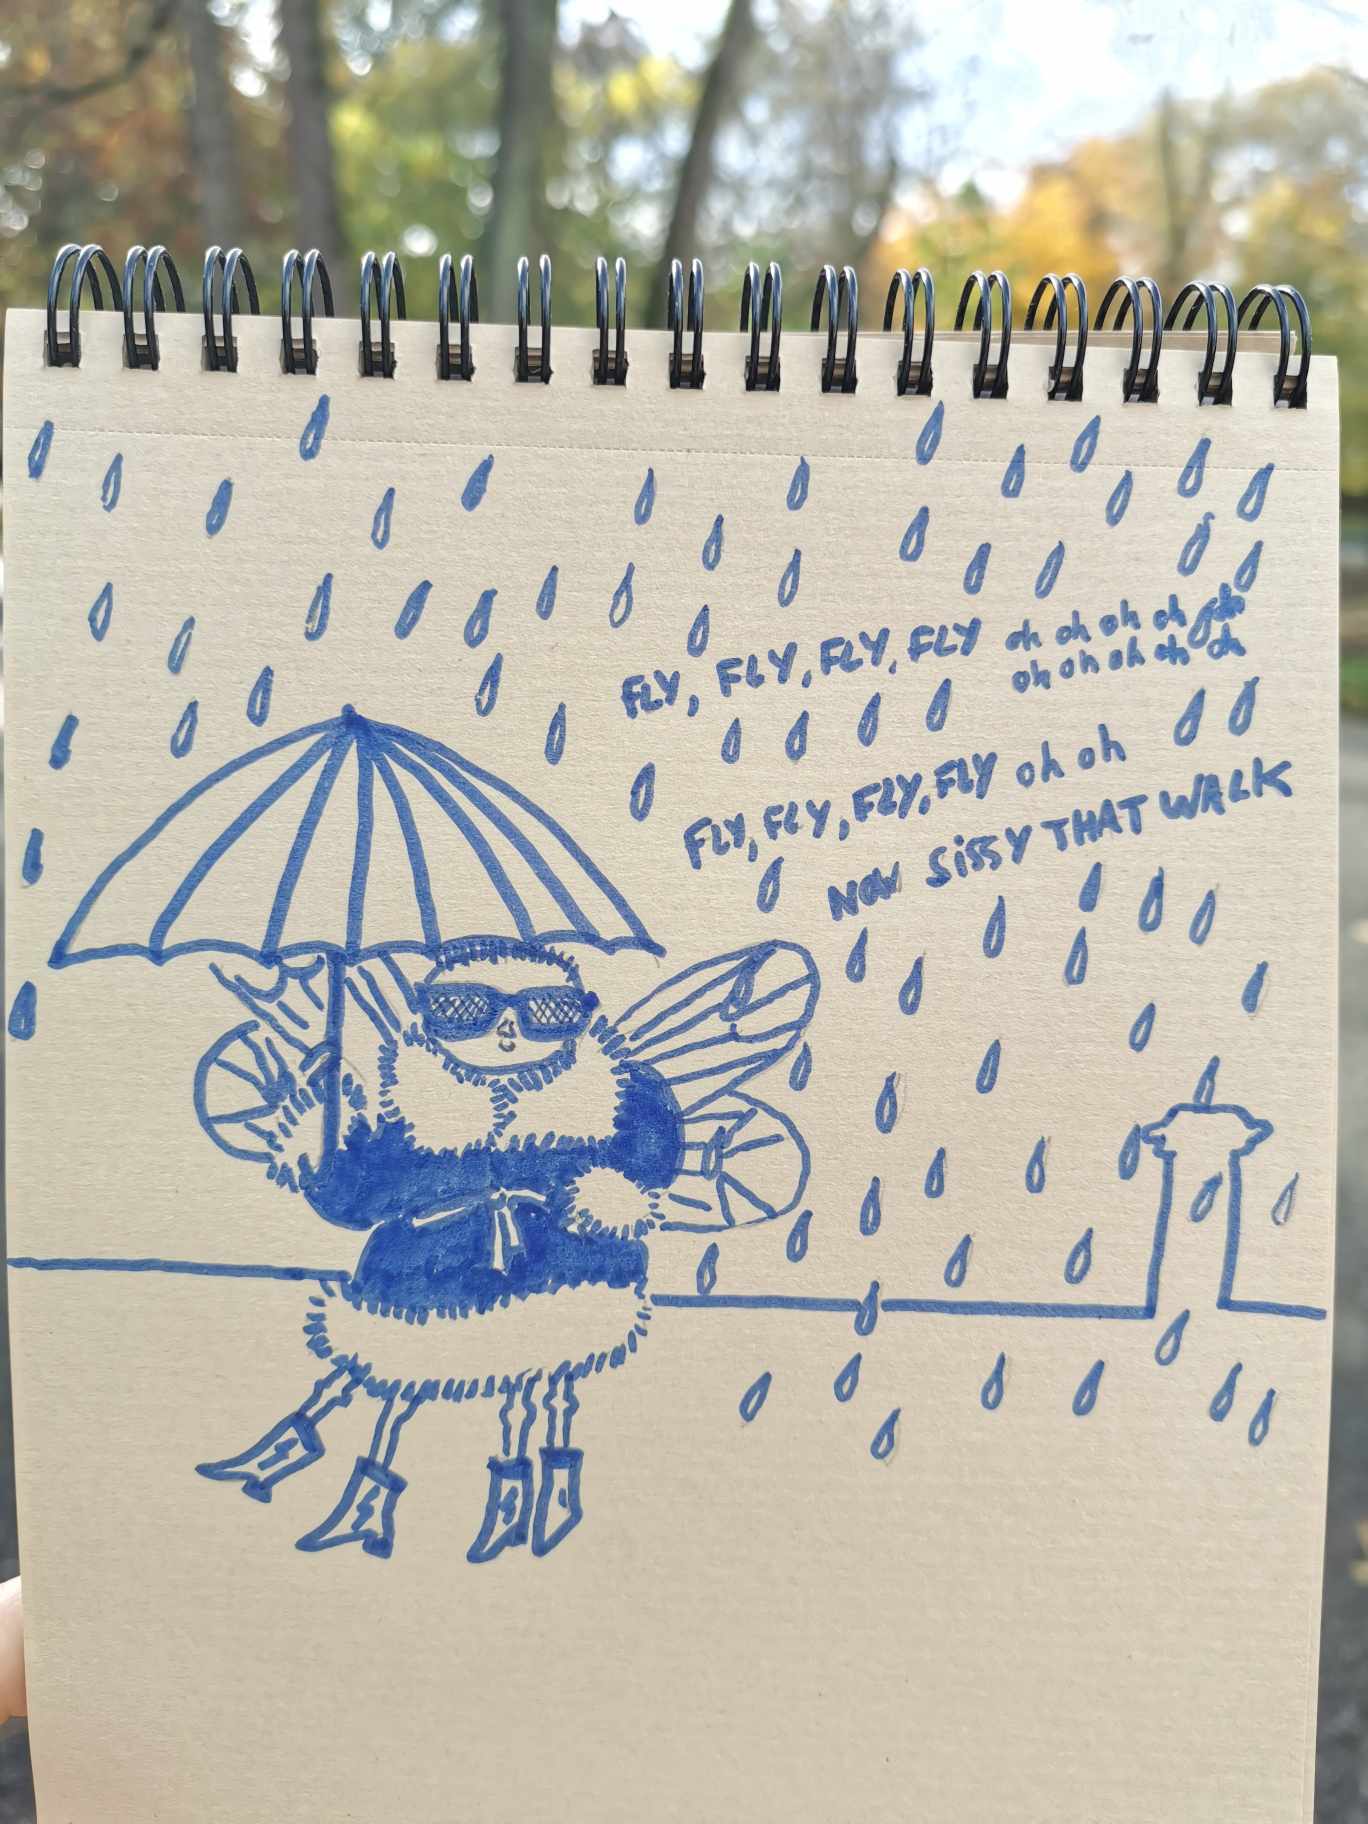 FLY, FLY, FLY, FLY oh oh oh oh ooh
oh oh oh oh oh
FLY, FLY, FLY, FLY oh oh
NOW SiSSY THAT WALK